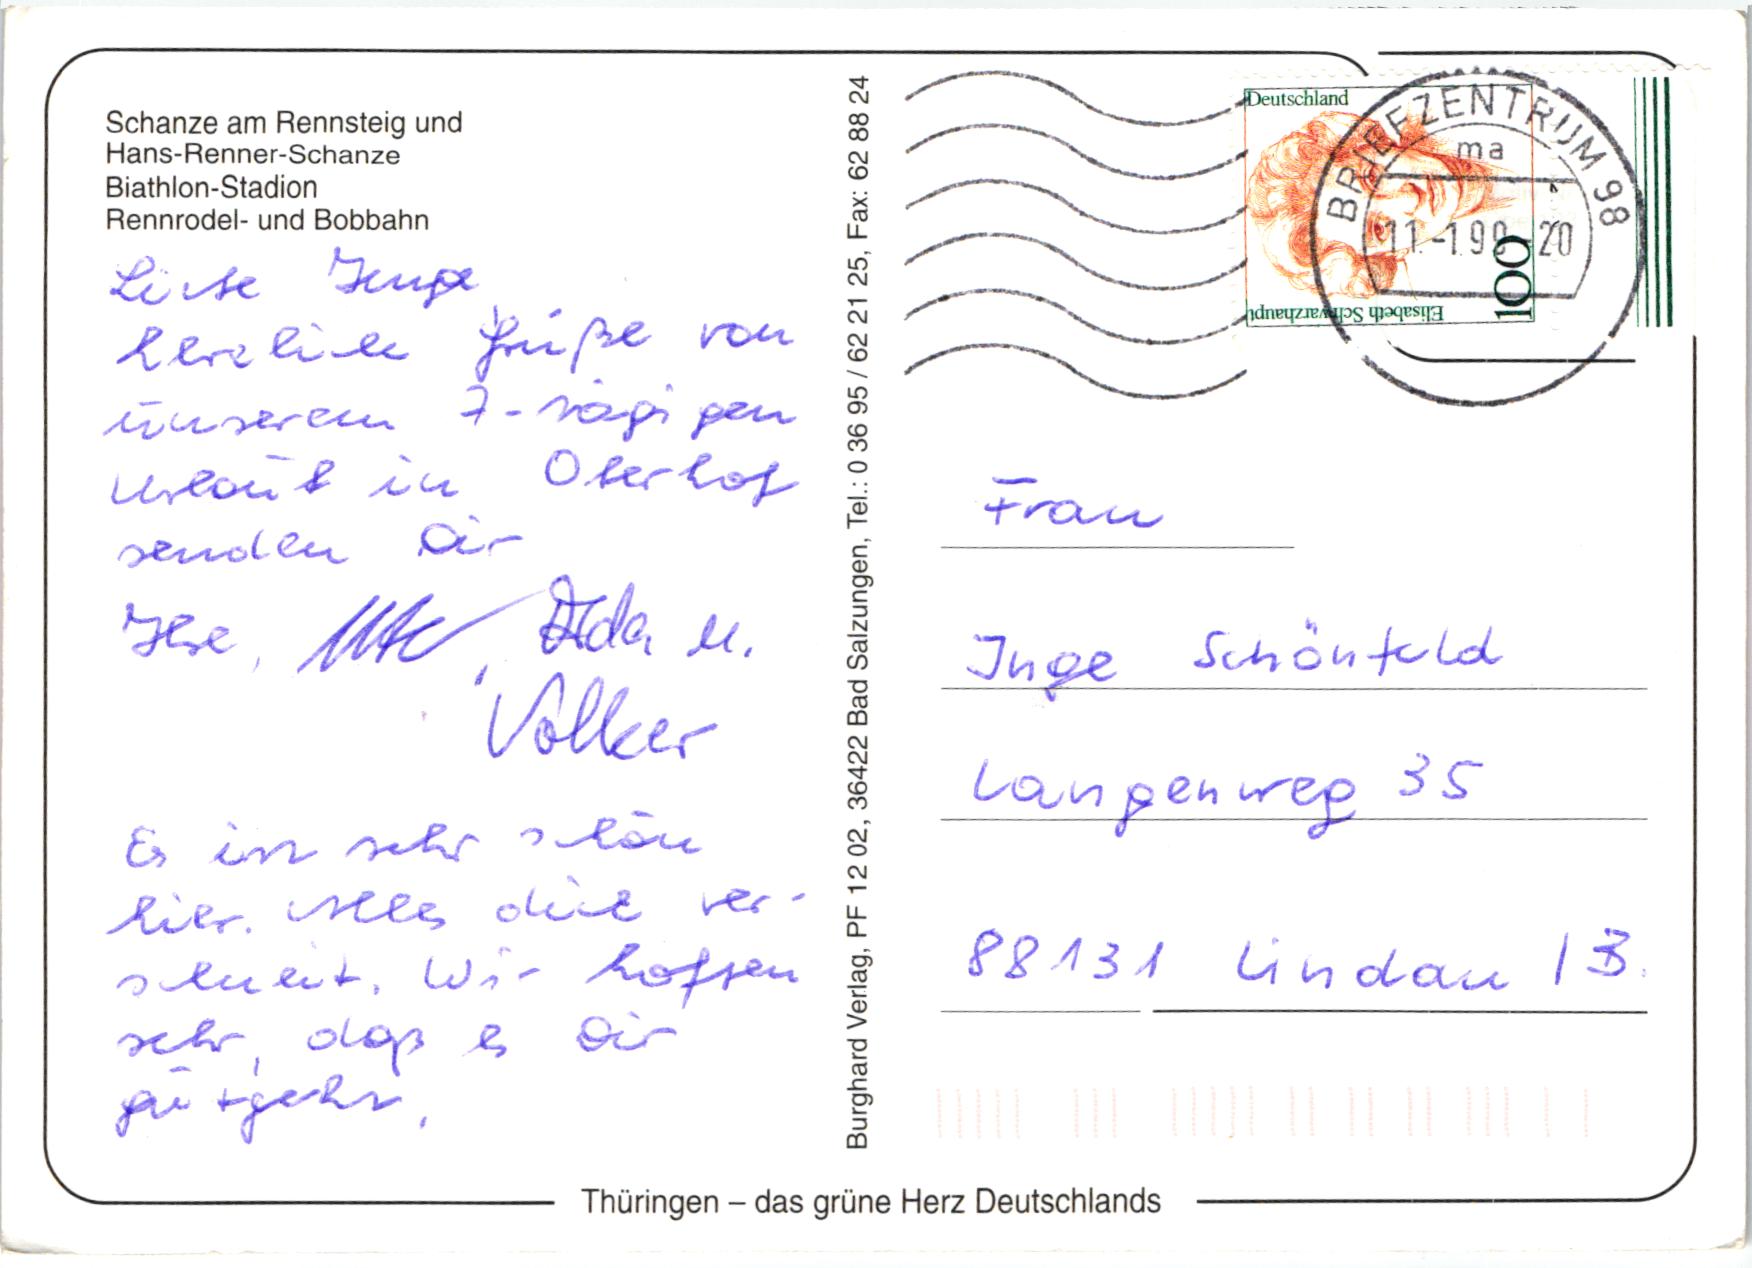 Schanze am Rennsteig und
Hans-Renner-Schanze
Biathlon-Stadion
Rennrodel- und Bobbahn
Liebe Inge,
herzliche Grüße von
unserem 7-tägigen
Urlaub in Oberhof
senden Dir
Ilse, Ute, Ida u.
Volker
Es ist sehr schön
hier. Alles dick ver-
schneit. Wir hoffen
sehr, daß es Dir
gutgeht.
Burghard Verlag, PF 12 02, 36422 Bad Salzungen, Tel.: 0 36 95 / 62 21 25, Fax: 62 88 24
Deutschland
Elisabeth Schwarzhaupt
100
BRIEFZENTRUM 98
ma
11.-1.99-20
Frau
Inge Schönfeld
Langenweg 35
88131 Lindau / B.
Thüringen – das grüne Herz Deutschlands